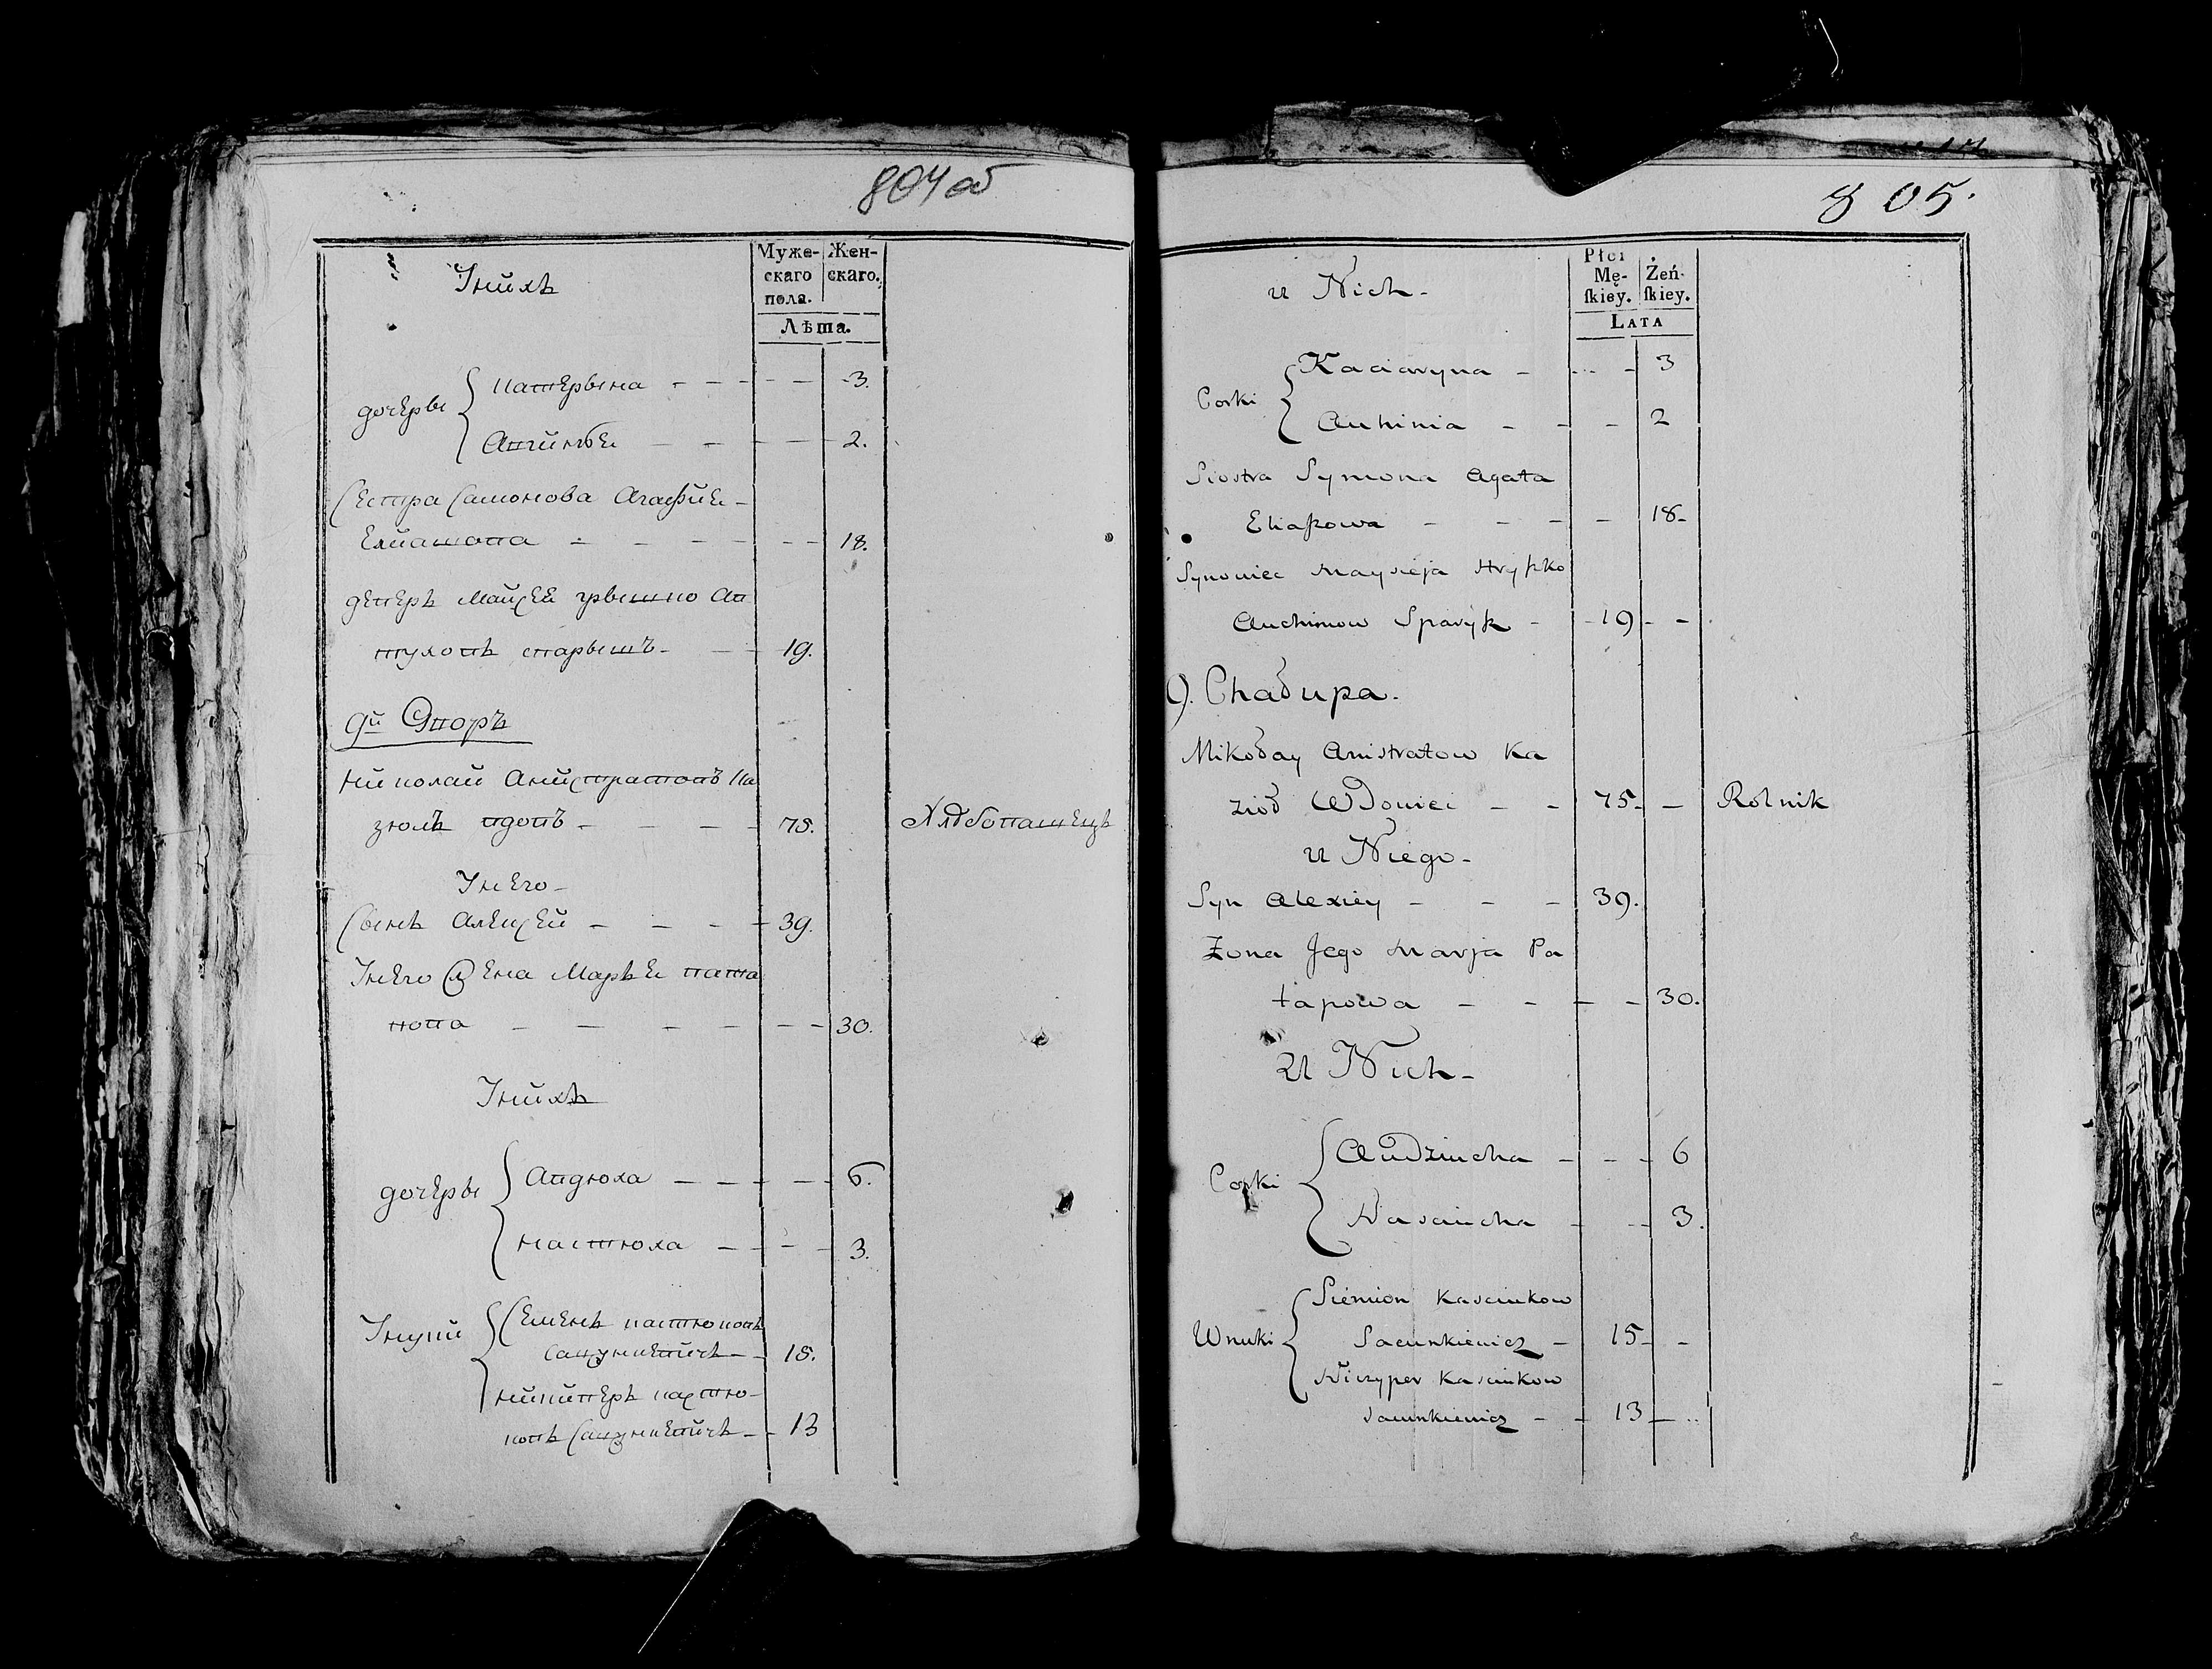 804 об
Унихъ
Муже-
скаго
пола.
Жен-
скаго.
Лѣта.
дочеры
катерына - - - - - 3.
Авгинье - - - - 2.
Сестра Самонова Агафие -
Елиашова - - - - - - 18.
Маисеи грышко Ав
туховъ спарышъ - - 19.
9й Дворъ
Николаи Анистратовъ Ка
зюлъ вдовъ - - - - 75. Хлѣбопашецъ
Унего -
Сынъ Алексей - - - - 39.
Унего жена Марье пата
пова - - - - - - 30.
Унихъ
дочеры
Авдюха - - - - - 6.
настюха - - - - 3.
Унуки
Семенъ кастюковъ
сацункевичъ - - 15.
никиперъ кастю-
ковъ Сацункевичъ - - 13
805.
u Nich -
Płci
Mę-
skiey.
Żeń-
skiey.
LATA
Corki
Kaciaryna - - - - 3
Auhinia - - - 2
Siostra Symona Agata
Eliaszowa - - - - 18 -
Synowiec Maysieja Hryszko
Auchimow Sparysz - - 19 - -
9. Chałupa.
Mikołay Anistratow Ka
zioł Wdowiec - - 75 - - Rolnik
u Niego -
Syn Alexiey - - - 39.
Żona Jego Marja Pa
tapowa - - - - 30.
U Nich -
Corki
Audziucha - - - 6
Nasciucha - - - 3.
Wnuki
Siemion Kasciukow
Sacunkiewicz - 15 - -
Niczyper Kasciukow
Sacunkiewicz - - 13 - ..